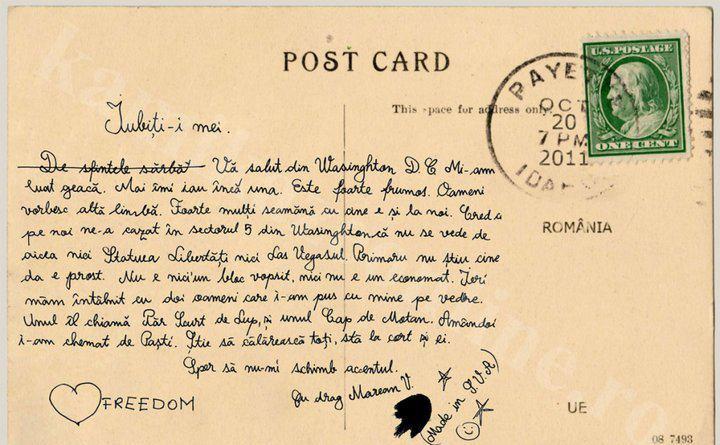 POST CARD
This space for address only.
U.S. POSTAGE
ONE CENT
PAYETTE
OCT
20
7 PM
2011
IDAHO
Iubiți-i mei.
De sfintele sărbă Vă salut din Wasinghton D C Mi-am
luat geacă. Mai îmi iau încă una. Este foarte frumos. Oameni
vorbesc altă limbă. Foarte mulți seamănă cu cine e și la noi. Cred că
pe noi ne-a cazat în sectorul 5 din Wasinghton că nu se vede de
aicea nici Statuea Libertăți nici Las Vegasul. Primaru nu știu cine
da e prost. Nu e nici'un bloc vopsit, nici nu e un economat. Ieri
mam întâlnit cu doi oameni care i-am pus cu mine pe vedere.
Unul îl chiamă Păr Scurt de Lup, și unul Cap de Motan. Amândoi
i-am chemat de Paști. Știe să călărească toți, stă la cort și ei.
Sper să nu-mi schimb accentul.
Cu drag Marean V.
FREEDOM
Made in S.U.A
ROMÂNIA
UE
08 7493